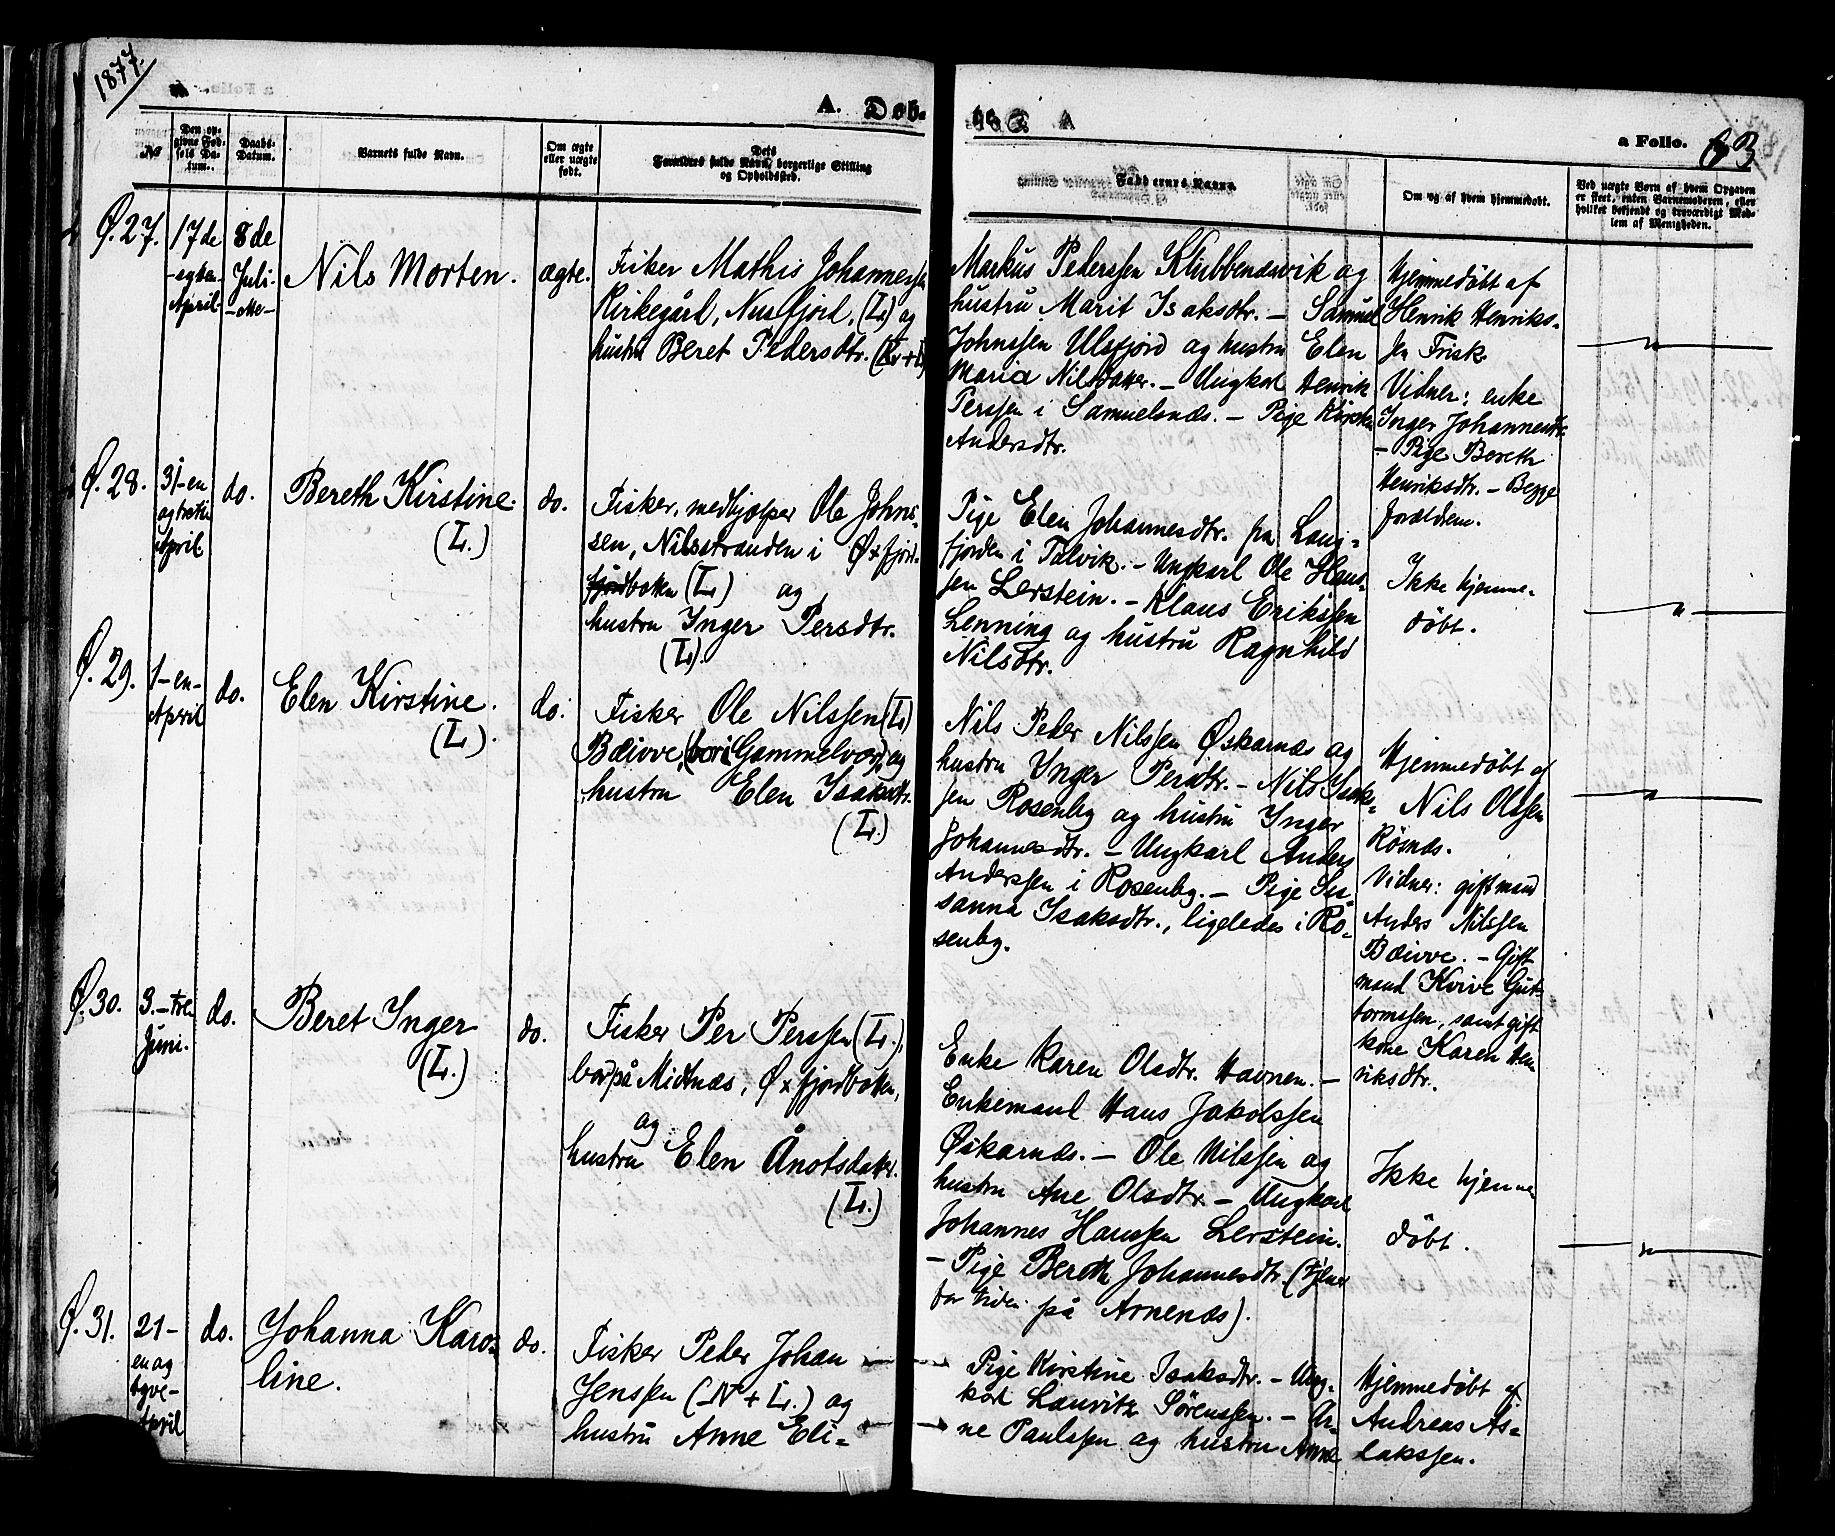 1877.
A. Døb-
te.
a Folio. 63
No
Den op-
givne Fød-
sels Da-
tum.
Daabs-
Datum.
Barnets fulde Navn.
Om ægte
eller uægte
født.
Dets
Forældres fulde Navn, borgerlige Stilling
og Opholdssted.
Faddernes Navne.
Om og af hvem hjemmedøbt.
Ved uægte Børn af hvem Opgaven
er skeet, enten Barnemoderen, eller
hvilket bekjendt og troværdigt Med-
lem af Menigheden.
Ø.27.
17de
April
8de
Juli
Nils Morten.
ægte.
Fisker Mathis Johannessen
Kirkegård, Nusfjord, (L) og
hustru Beret Pedersdtr.
Markus Pederssen Klubbendsvik og
hustru Marit Isaksdtr. – Samuel
Johnssen Ulsfjord og hustru Elen
Maria Nilsdatter. – Ungkarl Henrik
Perssen i Samuelsnæs. – Pige
Andersdtr.
Hjemmedøbt af
Henrik Henriks-
sen Frisk
Vidner: enke
Inger Johannesdtr.
– Pige Bereth
Henriksdtr. – Begge
forældrene.
Ø.28.
31-en
og
April
do.
Bereth Kirstine.
(L.)
do.
Fisker, medhjælper Ole Johns-
sen, Nilsstranden i Øxfjord-
botten (L.) og
hustru Inger Persdtr.
(L).
Pige Elen Johannesdtr. fra Lang-
fjorden i Talvik. – Ungkarl Ole Hans-
sen Lerstein. – Klaus Erikssen
Lenning og hustru Ragnhild
Nilsdtr.
Ikke hjemme-
døbt.
Ø.29.
1-en-
April
do.
Elen Kirstine.
(L).
do.
Fisker Ole Nilssen (L)
Bæivve, (bor i Gammelvær) og
hustru Elen Isaksdtr.
(L.)
Nils Peder Nilssen Øskarnæs og
hustru Inger Persdtr. – Nils Isak-
sen Rosenbg og hustru Inger
Johannesdtr. – Ungkarl Anders
Anderssen i Rosenbg. – Pige Su-
sanna Isaksdtr., ligeledes i Ro-
senbg.
Hjemmedøbt af
Nils Olssen
Vidner: giftmand
Anders Nilssen
Bæivve. – Gift
mand Kvive Gut-
tormssen, samt gift
kone Karen Hen
riksdtr.
Ø.30.
3.-tre
Juni.
do.
Beret Inger
(L.)
do.
Fisker Per Perssen (L.),
bor på Midtnæs, Øxfjordbotten,
og
hustru Elen Ånotsdatter.
(L.)
Enke Karen Olsdtr. Havnen. –
Enkemand Hans Jakobssen
Øskarnæs. – Ole Nilssen og
hustru Ane Olsdtr. – Ungkarl
Johannes Hanssen Lerstein.
– Pige Bereth Johannesdtr. (tjener
for tiden på Arnenæs).
Ikke hjemme
døbt.
Ø.31.
21-
en og
tyve-
April
do.
Johanna Karo-
line.
do.
Fisker Peder Johan
Jenssen (N + L.) og
hustru Anne Eli-
Pige Kirstine Isaksdtr. – Ung-
karl Lauritz Sørenssen. – Ar-
ne Paulssen og hustru Anne
Hjemmedøbt af
Andreas As-
lakssen.